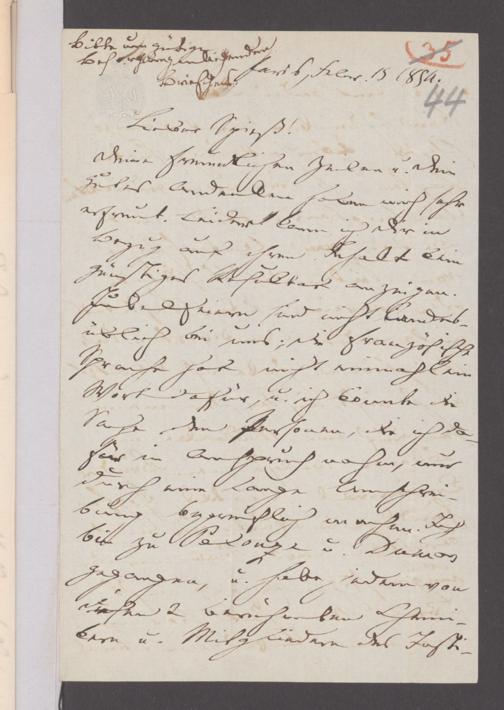 Bitte um gütige
Besorgung einliegenden
Briefchens!
35
44
Paris, Febr. 15 1854.
Lieber Spieß!
Deine freundlichen Zeilen u. Dein
gutes Andenken haben mich sehr
erfreut. Leider kann ich Dir in
Bezug auf ihren Inhalt kein
günstiges Resultat anzeigen.
Jubelfeiern sind nicht landes-
üblich bei uns; die französische
Sprache hat nicht einmahl ein
Wort dafür, u. ich konnte die
Sache den Personen, die ich da-
für in Anspruch nahm, nur
durch eine lange Umschrei-
bung begreiflich machen. Ich
bin zu Pelouze u. Dumas
gegangen, u. habe jedem von
diesen 2 berühmten Chemi-
kern u. Mitgliedern des Insti-